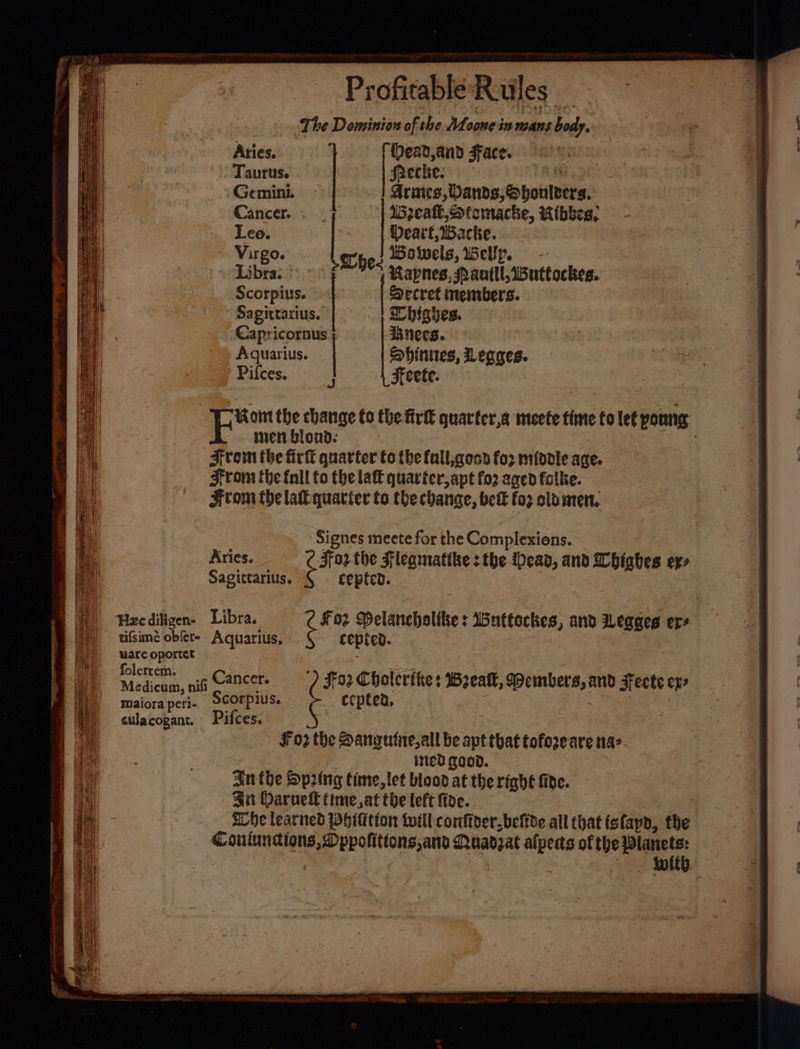 Profitable Rules
The Dominion of the Moone in mans body.
Aries. Head, and Face.
Taurus. Necke.
Gemini. Armes, Hands, Shoulders.
Cancer. Breast, Stomacke, Ribbes.
Leo. Heart, Backe.
Virgo. The Bowels, Belly.
Libra. Raynes, Navill, Buttockes.
Scorpius. Secret members.
Sagittarius. Thighes.
Capricornus Knees.
Aquarius. Shinnes, Legges.
Pisces. Feete.
FRom the change to the first quarter, a meete time to let young
men bloud:
From the first quarter to the full, good for middle age.
From the full to the last quarter, apt for aged folke.
From the last quarter to the change, best for old men.
Signes meete for the Complexions.
Aries. For the Flegmatike: the Head, and Thighes ex-
Sagittarius. cepted.
Hæc diligen- Libra. For Melancholike: Buttockes, and Legges ex-
tissimè obser- Aquarius, cepted.
uare oportet
solertem.
Medicum, nisi Cancer. For Cholerike: Breast, Members, and Feete ex-
maiora peri- Scorpius. cepted.
culacogant. Pisces.
For the Sanguine, all be apt that tofore are na-
med good.
In the Spring time, let blood at the right side.
In Haruest time, at the left side.
The learned Phisition will consider, beside all that is sayd, the
Coniunctions, Oppositions, and Quadrat aspects of the Planets:
with